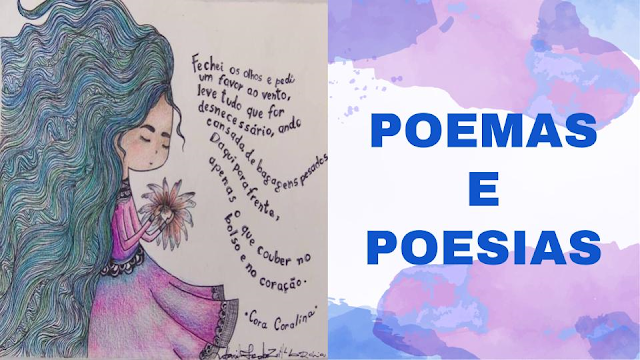 Fechei os olhos e pedi
um favor ao vento,
leve tudo que for
desnecessário, ando
cansada de bagagens pesadas
Daqui para frente,
apenas o que couber no
bolso e no coração.
"Cora Coralina"
POEMAS
E
POESIAS